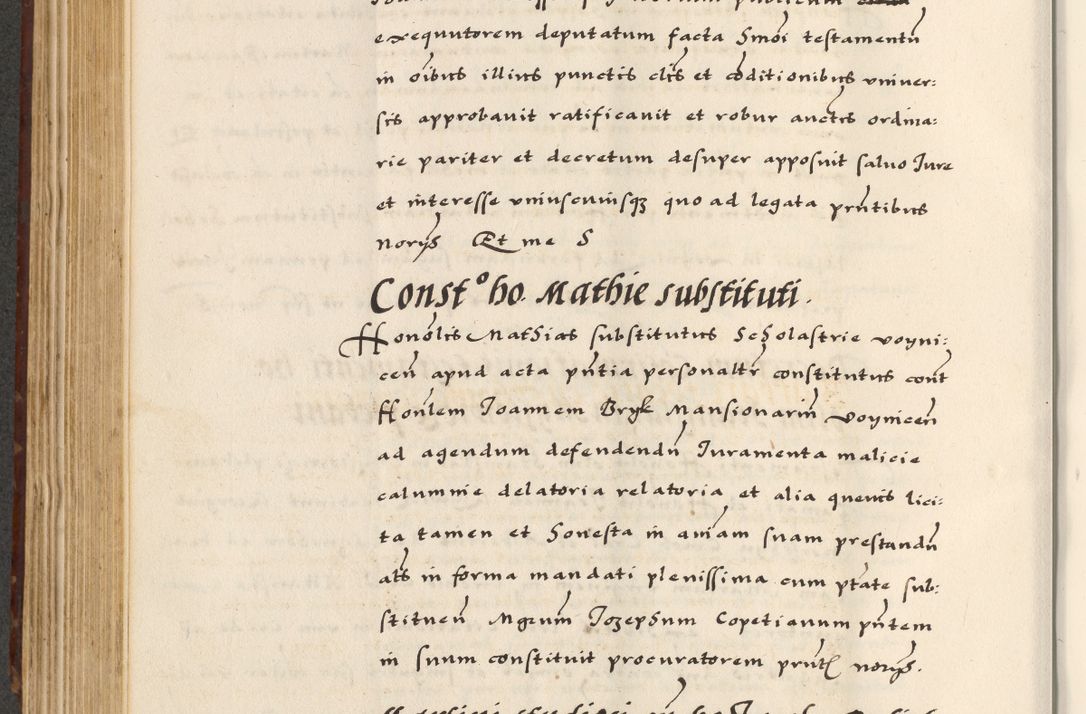 exequutorem deputatum facta hmoi testamentū
in oibus illius punctis clis et cōditionibus univer:
sis approbavit ratificavit et robur auctis ordina:
rie pariter et decretum desuper apposuit salvo Jure
et interesse uniuscuiusqȝ quo ad legata pñtibus
norijs Et me S
Constº ho. Mathie substituti.
Honōlis Mathias substitutus Scholastrie voyni:
ceñ apud acta pñtia personaltr constitutus cont
Honlem Joannem Bryk Mansionariū voyniceñ
ad agendum defendendū Juramenta malicie
calumnie delatoria relatoria et alia quevis lici:
ta tamen et honesta in aniam suam prestandū
ats in forma mandati plenissima cum ptate sub:
stitueñ Mgrum Jozephum Copetianum pñtem
in suum constituit procuratorem prnt norijs.